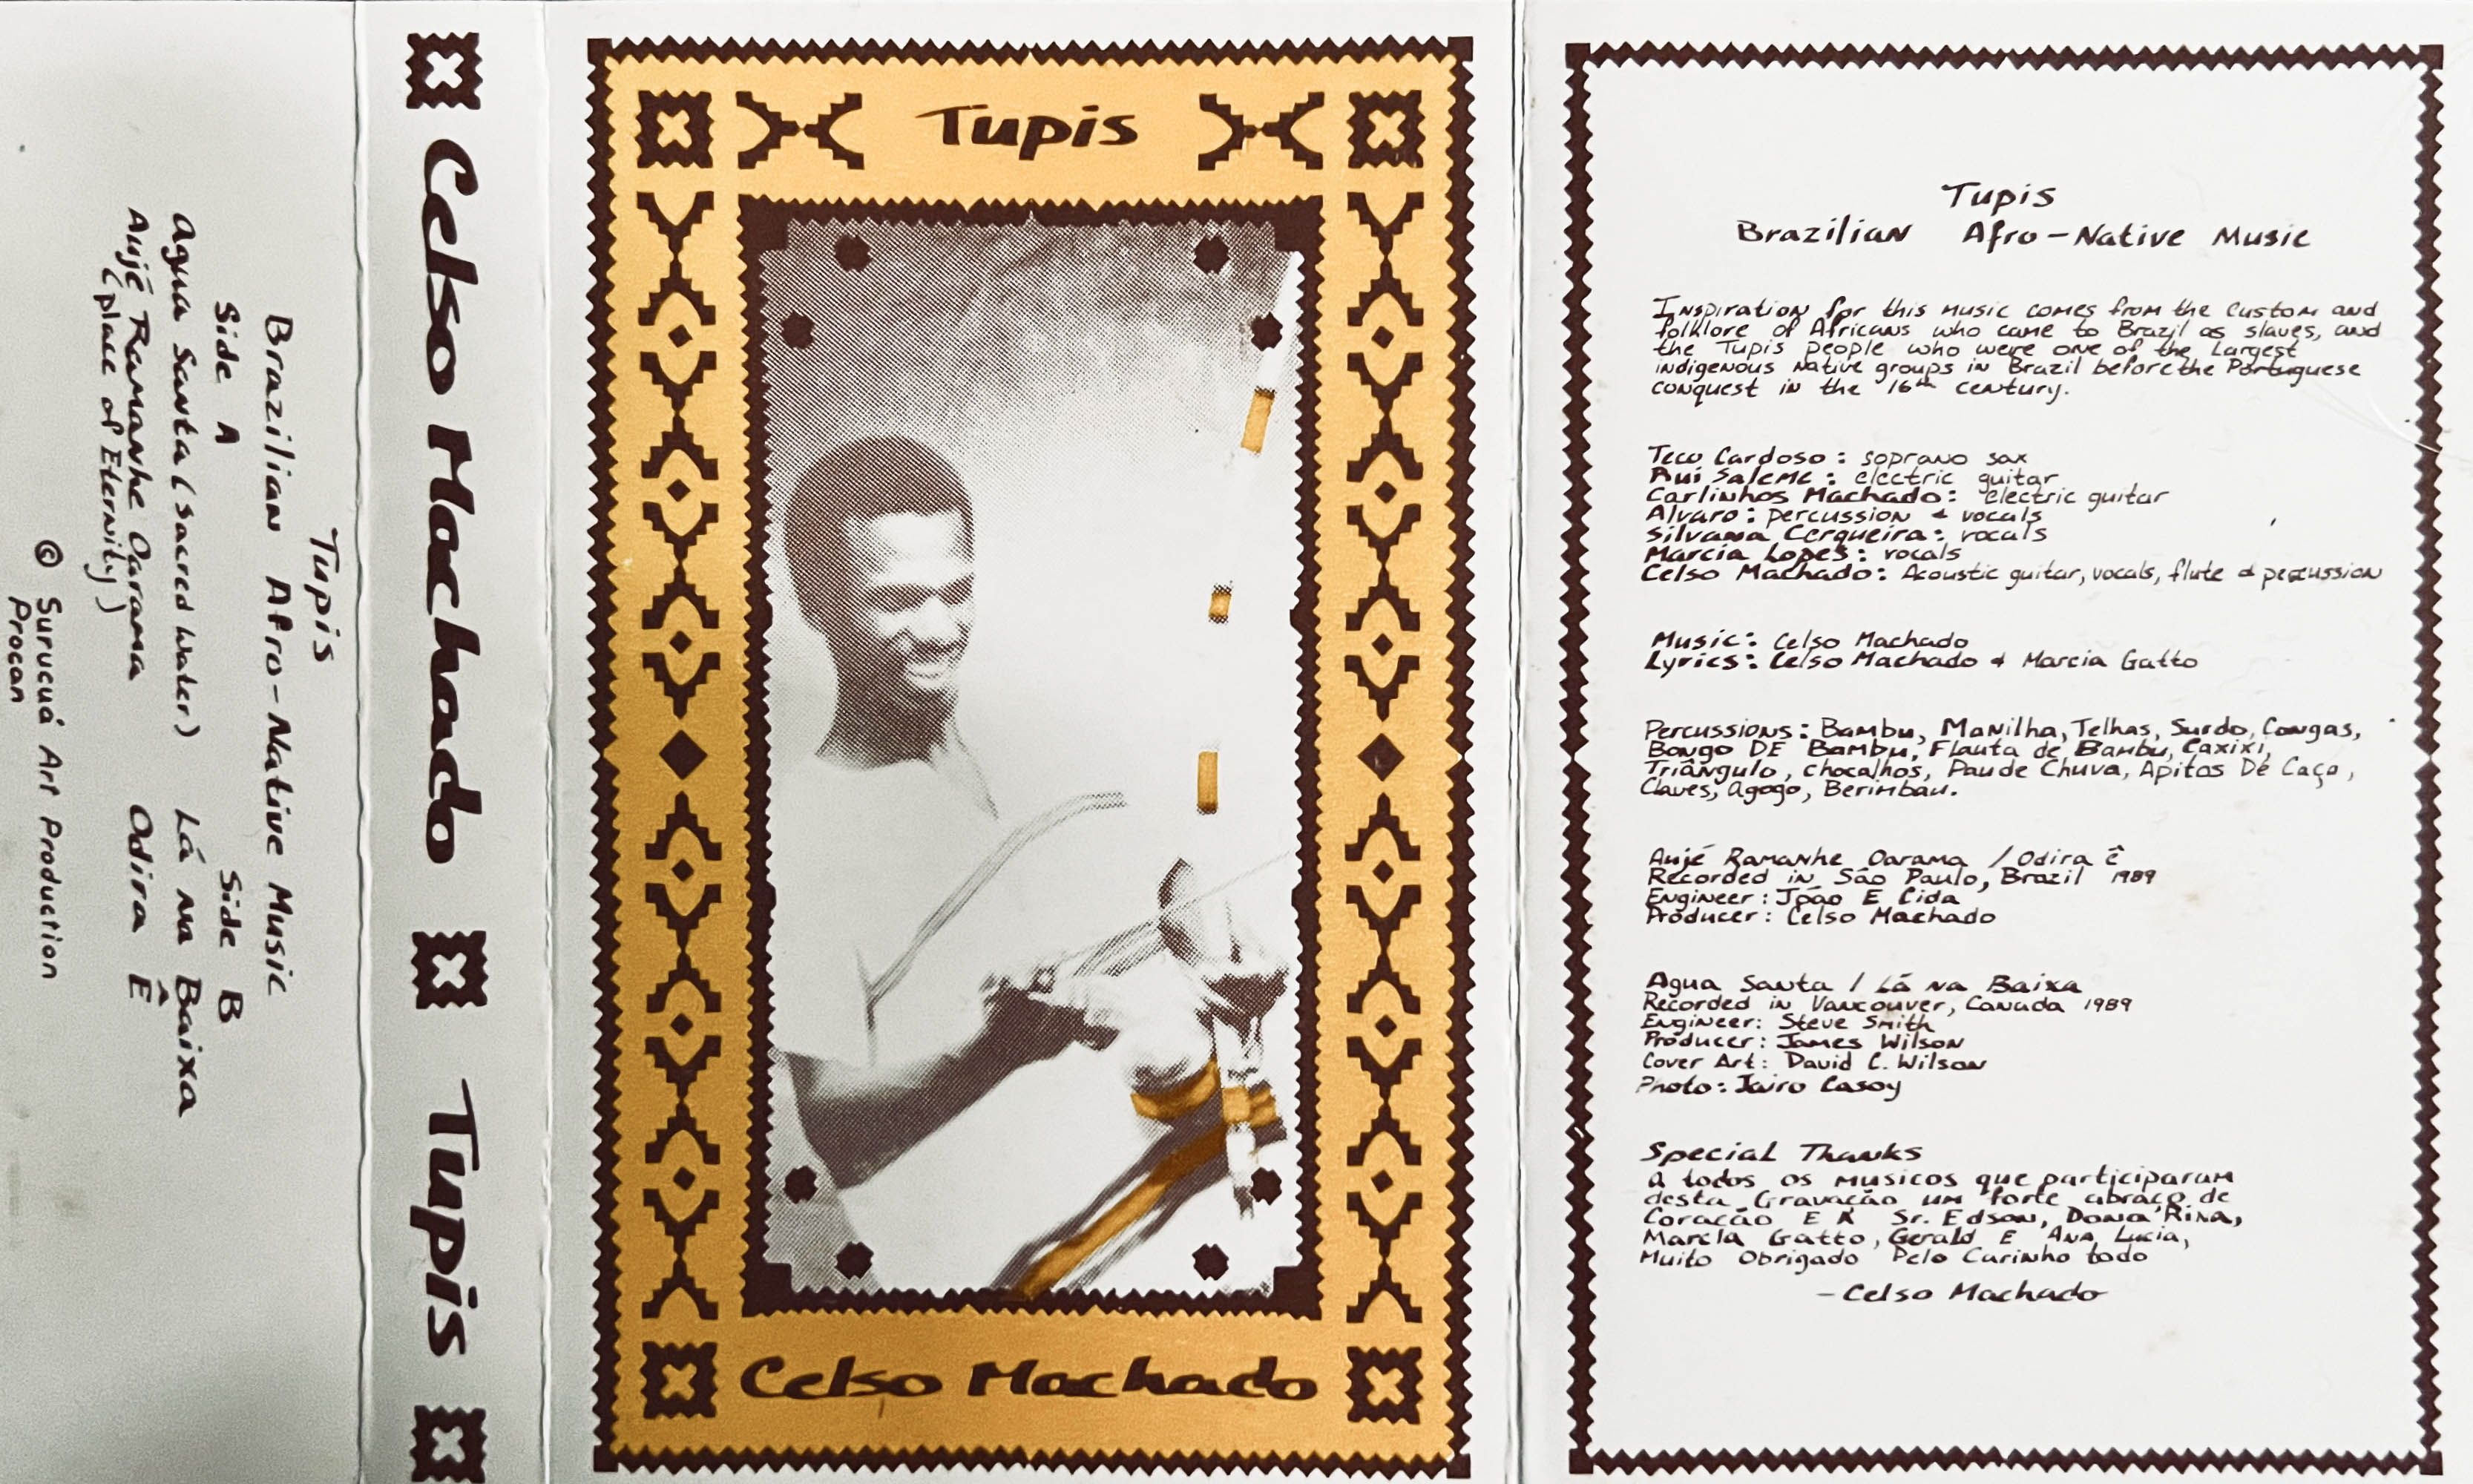 Tupis
Brazilian Afro-Native Music
Side A
Side B
Agua Santa (Sacred Water)
Lá na Baixa
Aujé Ramanhe Oarama
Odira Ê
(place of Eternity)
© Surucuá Art Production
Procan
Celso Machado Tupis
Tupis
Celso Machado
Tupis
Brazilian Afro-Native Music
Inspiration for this music comes from the custom and
folklore of Africans who came to Brazil as slaves, and
the Tupis people who were one of the Largest
indigenous Native groups in Brazil before the Portuguese
conquest in the 16th century.
Teco Cardoso: soprano sax
Rui Saleme: electric guitar
Carlinhos Machado: electric guitar
Alvaro: percussion & vocals
Silvana Cerqueira: vocals
Marcia Lopes: vocals
Celso Machado: Acoustic guitar, vocals, flute & percussion
Music: Celso Machado
Lyrics: Celso Machado & Marcia Gatto
Percussions: Bambu, Manilha, Telhas, Surdo, Congas,
Bongo DE Bambu, Flauta de Bambu, Caxixi,
Triângulo, chocalhos, Pau de Chuva, Apitos De Caça,
Claves, Agogo, Berimbau.
Aujé Ramanhe Oarama / Odira ê
Recorded in São Paulo, Brazil 1989
Engineer: João E Cida
Producer: Celso Machado
Agua Santa / Lá na Baixa
Recorded in Vancouver, Canada 1989
Engineer: Steve Smith
Producer: James Wilson
Cover Art: David C. Wilson
Photo: Jairo Casoy
Special Thanks
A todos os musicos que participaram
desta Gravação um forte abraço de
Coração E A Sr. Edson, Dona Rina,
Marcia Gatto, Gerald E Ana Lucia,
Muito Obrigado Pelo Carinho todo
-Celso Machado